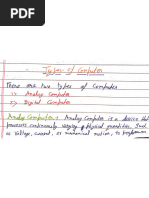 Types of Computer
There are two types of Computer
1> Analog Computer
2> Digital Computer
Analog Computer: Analog Computer is a device that
processes continuously varying physical quantities. Such
as voltage, current, or mechanical motion, to